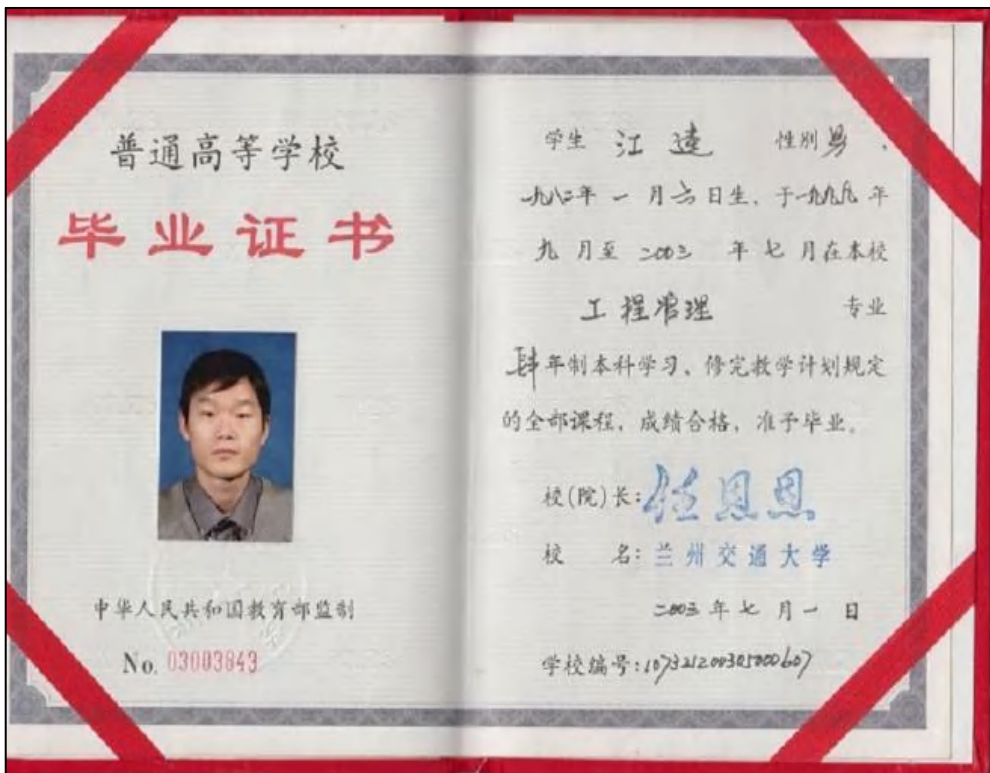 普通高等学校
毕业证书
中华人民共和国教育部监制
No. 03003843
学生 江遠 性别 男、
一九八二年 一 月 六 日生, 于一九九九 年
九 月至 二00三 年 七 月在本校
工程管理 专业
肆年制本科学习, 修完教学计划规定
的全部课程, 成绩合格, 准予毕业。
校(院)长: 任恩恩
校 名: 兰州交通大学
二00三 年 七 月 一 日
学校编号: 107321200305000607